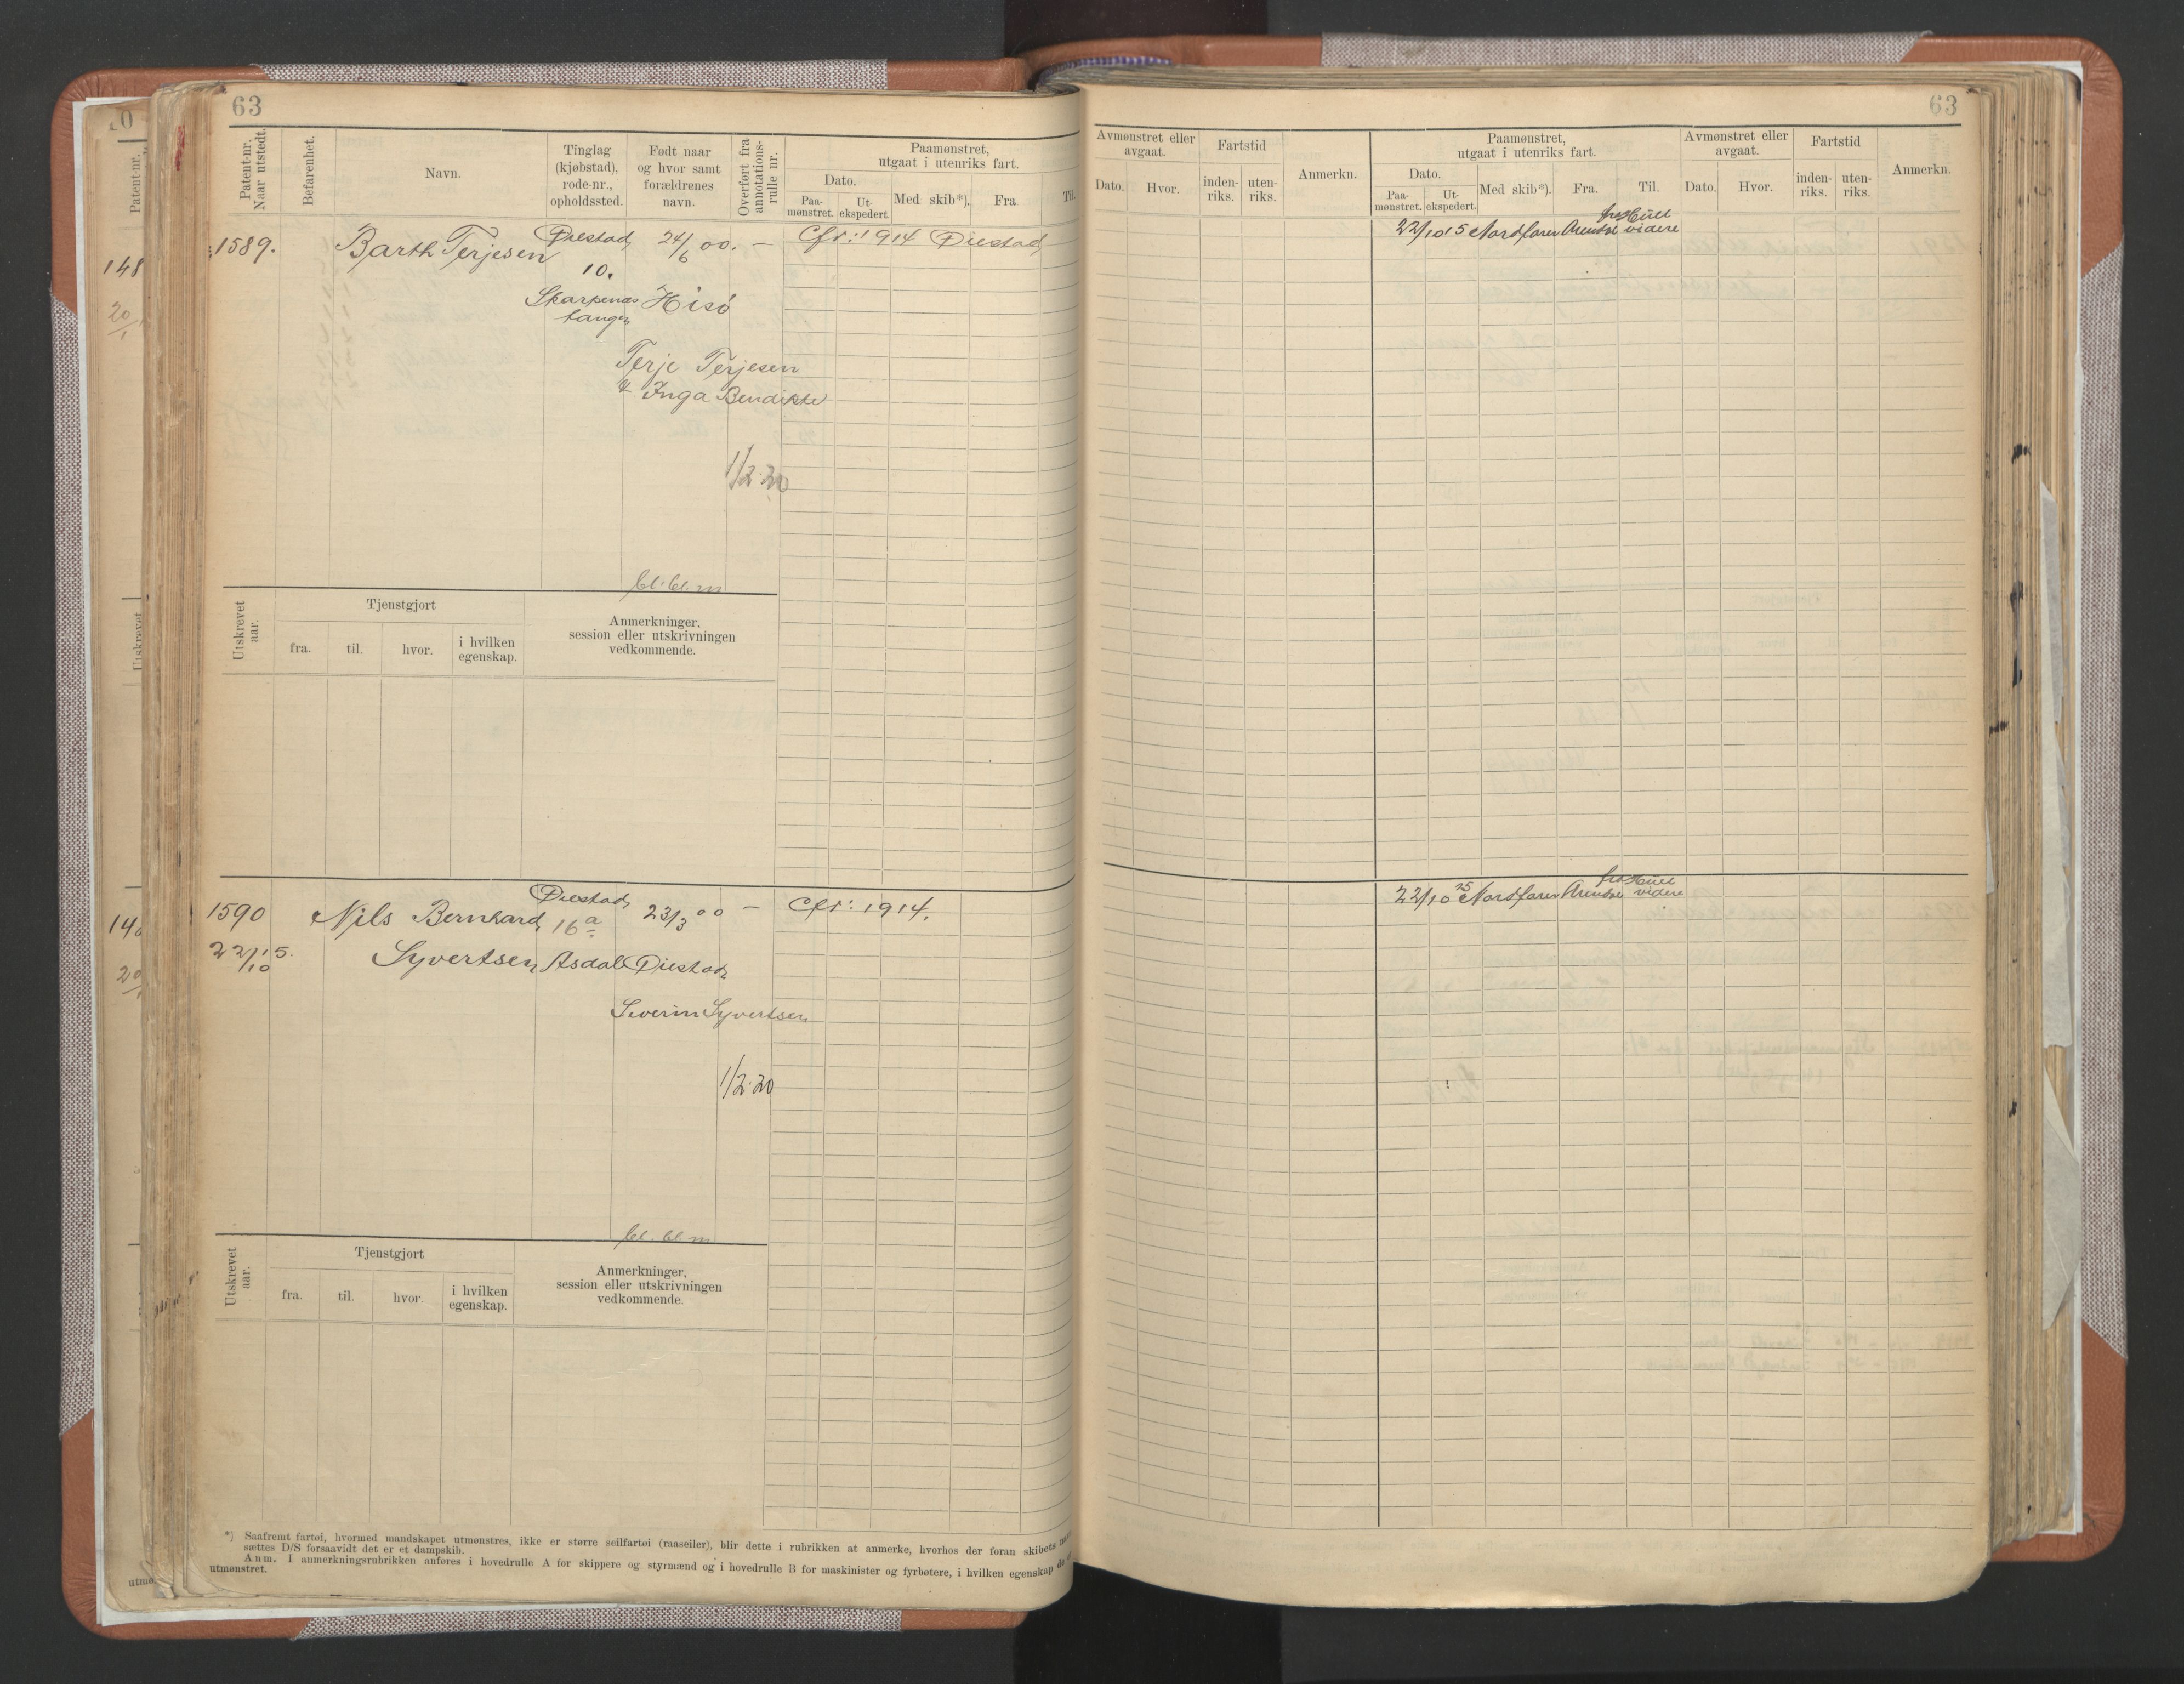 63
Patent-nr.
Naar utstedt.
Befarenhet.
Navn.
Tinglag
(kjøbstad),
rode-nr.,
opholdssted.
Født naar
og hvor samt
forældrenes
navn.
Overført fra
annotations-
rulle nr.
Paamønstret,
utgaat i utenriks fart.
Dato.
Paa-
mønstret.
Ut-
ekspedert.
Med skib*).
Fra.
Til.
1589.
Barth Terjesen
Øiestad
10.
Skarpenes
tangen
24/6 00.
Hisö
Terje Terjesen
& Inga Bendikte
—
1/2·20
Cfr: 1914 Øiestad
bl. bl. m
Utskrevet
aar.
Tjenstgjort
fra.
til.
hvor.
i hvilken
egenskap.
Anmerkninger,
session eller utskrivningen
vedkommende.
1590
22/10 15.
Nils Bernhard
Syvertsen
Øiestad
16 a
Asdal
23/3 00
Øiestad
Severin Syvertsen
—
1/2·20
Cfr: 1914.
bl. bl. m
Utskrevet
aar.
Tjenstgjort
fra.
til.
hvor.
i hvilken
egenskap.
Anmerkninger,
session eller utskrivningen
vedkommende.
*) Saafremt fartøi, hvormed mandskapet utmønstres, ikke er større seilfartøi (raaseiler), blir dette i rubrikken at anmerke, hvorhos der foran skibets navn
sættes D/S forsaavidt det er et dampskib.
Anm. I anmerkningsrubrikken anføres i hovedrulle A for skippere og styrmænd og i hovedrulle B for maskinister og fyrbøtere, i hvilken egenskap de
utmønstret.
63
Avmønstret eller
avgaat.
Dato.
Hvor.
Fartstid
inden-
riks.
uten-
riks.
Anmerkn.
Paamønstret,
utgaat i utenriks fart.
Dato.
Paa-
mønstret.
Ut-
ekspedert.
Med skib*).
Fra.
Til.
Avmønstret eller
avgaat.
Dato.
Hvor.
Fartstid
inden-
riks.
uten-
riks.
Anmerkn.
22/10 15 Nordfaren Arendal fra Hull
videre
22/10 15 Nordfaren Arendal fra Hull
videre
Patent-nr.
148
20/1
Utskrevet
20
utmø